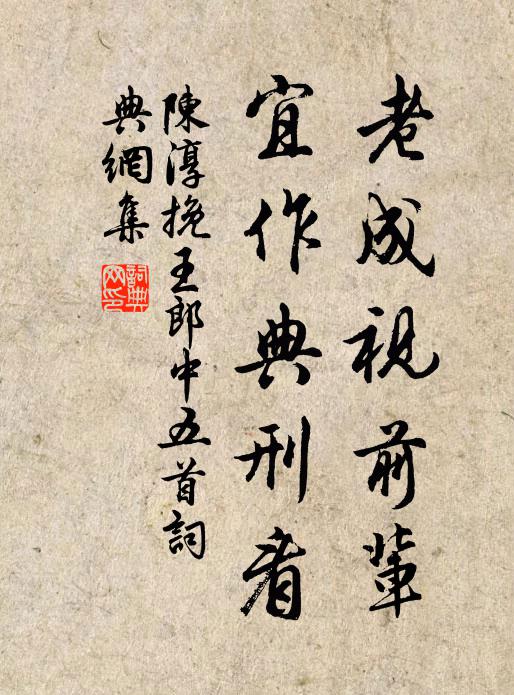 老成視前輩
宜作典刑看
陳淳挽王郎中五首詞
典網集
詞典網印